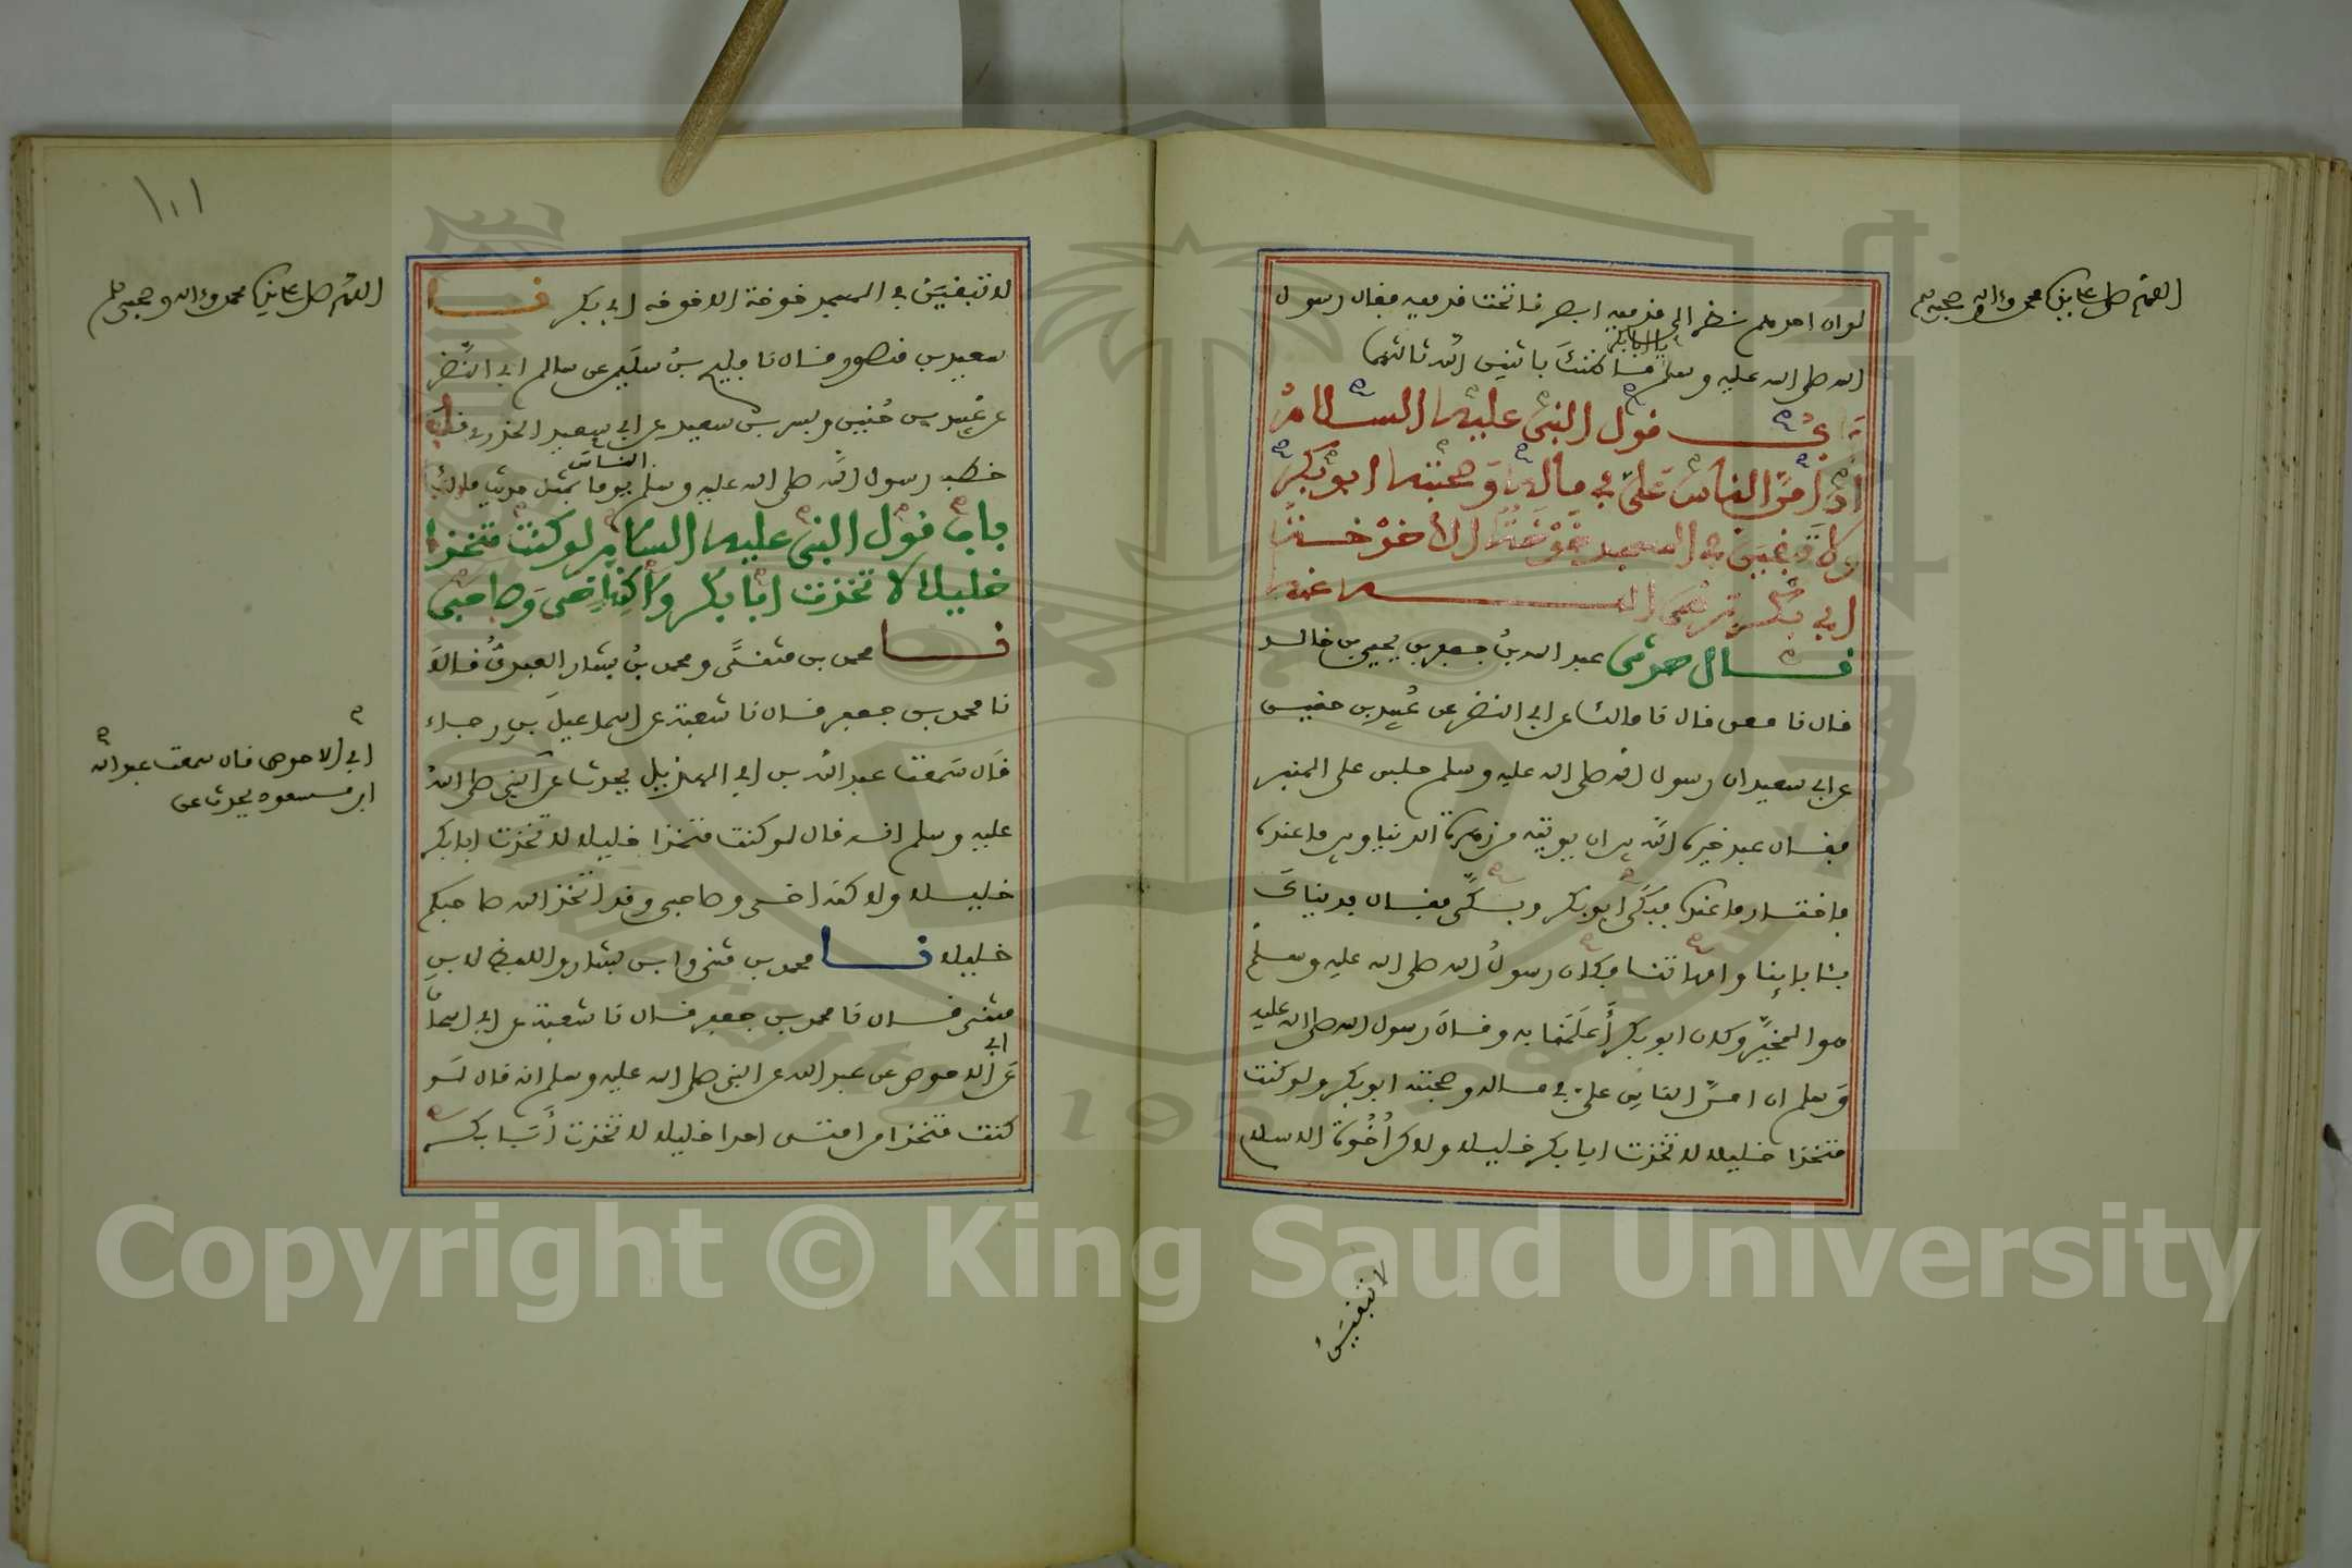 اللهم صل على نبينا محمد وءاله وصحبه وسلم
لو ان احدهم نظر الى قدميه ابصرنا تحت قدميه فقال رسول
الله صلى الله عليه وسلم يا ابا بكر ما ظنك باثنين الله ثالثهما
باب قول النبي عليه السلام
ان امن الناس علي في ماله وصحبته ابو بكر
ولا تبقين في المسجد خوخة الا خوخة
ابي بكر رضي الله عنه
قال حدثني عبد الله بن جعفر بن يحيى بن خالد
قال نا معن قال نا مالك عن ابي النضر عن عبيد بن حنين
عن ابي سعيد ان رسول الله صلى الله عليه وسلم جلس على المنبر
فقال عبد خيره الله بين ان يوتيه من زهرة الدنيا وبين ما عنده
فاختار ما عنده فبكى ابو بكر وبكى فقال فديناك
بئابائنا وامهاتنا فكان رسول الله صلى الله عليه وسلم
هو المخير وكان ابو بكر أعلمنا به وقال رسول الله صلى الله عليه
وسلم ان امن الناس علي في ماله وصحبته ابو بكر ولو كنت
متخذا خليلا لاتخذت ابا بكر خليلا ولاكن أخوة الاسلام
لا تبقين
١٠١
اللهم صل على نبينا محمد وءاله وصحبه وسلم
لا تبقين في المسجد خوخة الا خوخة ابي بكر نا
سعيد بن منصور قال نا فليح بن سليم عن سالم ابي النضر
عن عبيد بن حنين وبسر بن سعيد عن ابي سعيد الخدري قال
خطب رسول الله صلى الله عليه وسلم الناس يوما بمثل حديث مالك
باب قول النبي عليه السلام لو كنت متخذا
خليلا لاتخذت ابا بكر ولاكن اخي وصاحبي
نا محمد بن مثنى ومحمد بن بشار العبدي قالا
نا محمد بن جعفر قال نا شعبة عن اسماعيل بن رجاء
قال سمعت عبد الله بن ابي الهذيل يحدث عن ابي الاحوص قال سمعت عبد الله
ابن مسعود يحدث عن النبي صلى الله
عليه وسلم انه قال لو كنت متخذا خليلا لاتخذت ابا بكر
خليلا ولاكنه اخي وصاحبي وقد اتخذ الله صاحبكم
خليلا نا محمد بن مثنى وابن بشار واللفظ لابن
مثنى قال نا محمد بن جعفر قال نا شعبة عن ابي اسحاق
عن ابي الاحوص عن عبد الله عن النبي صلى الله عليه وسلم انه قال لو
كنت متخذا من امتي احدا خليلا لاتخذت أبا بكر
Copyright © King Saud University
1957